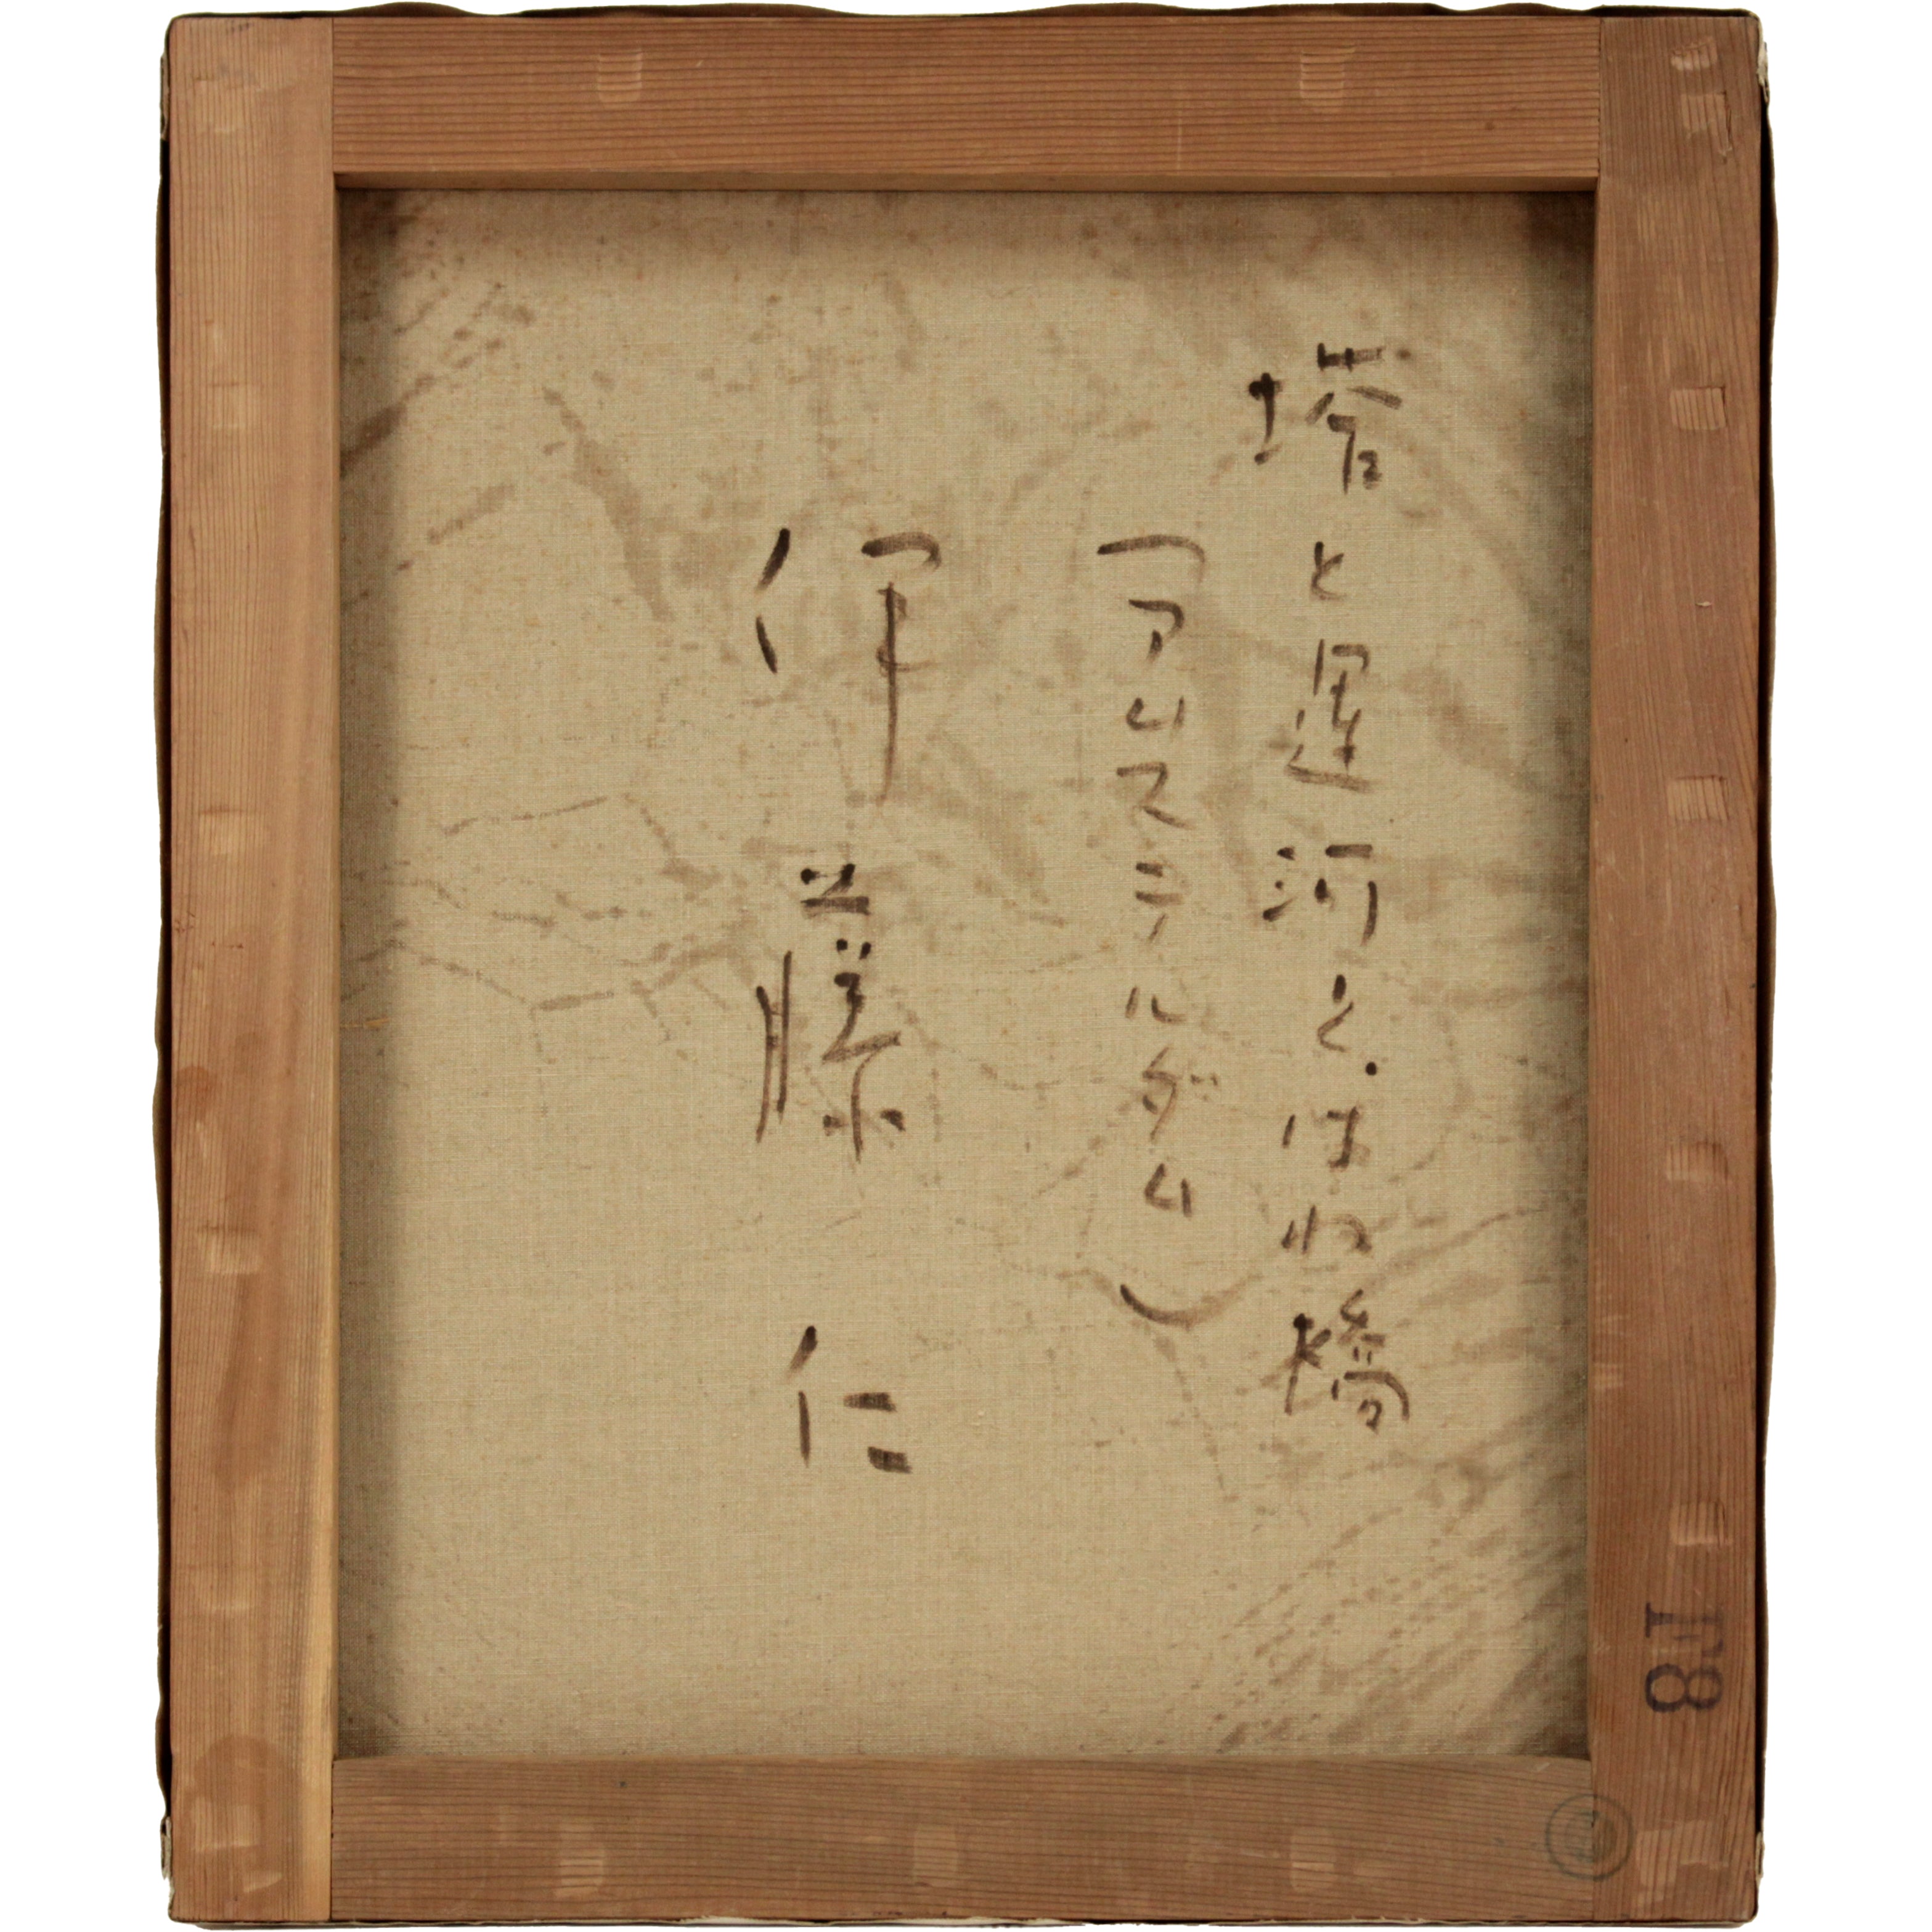 塔と運河と.はね橋
(アムステルダム)
伊藤 仁
F8